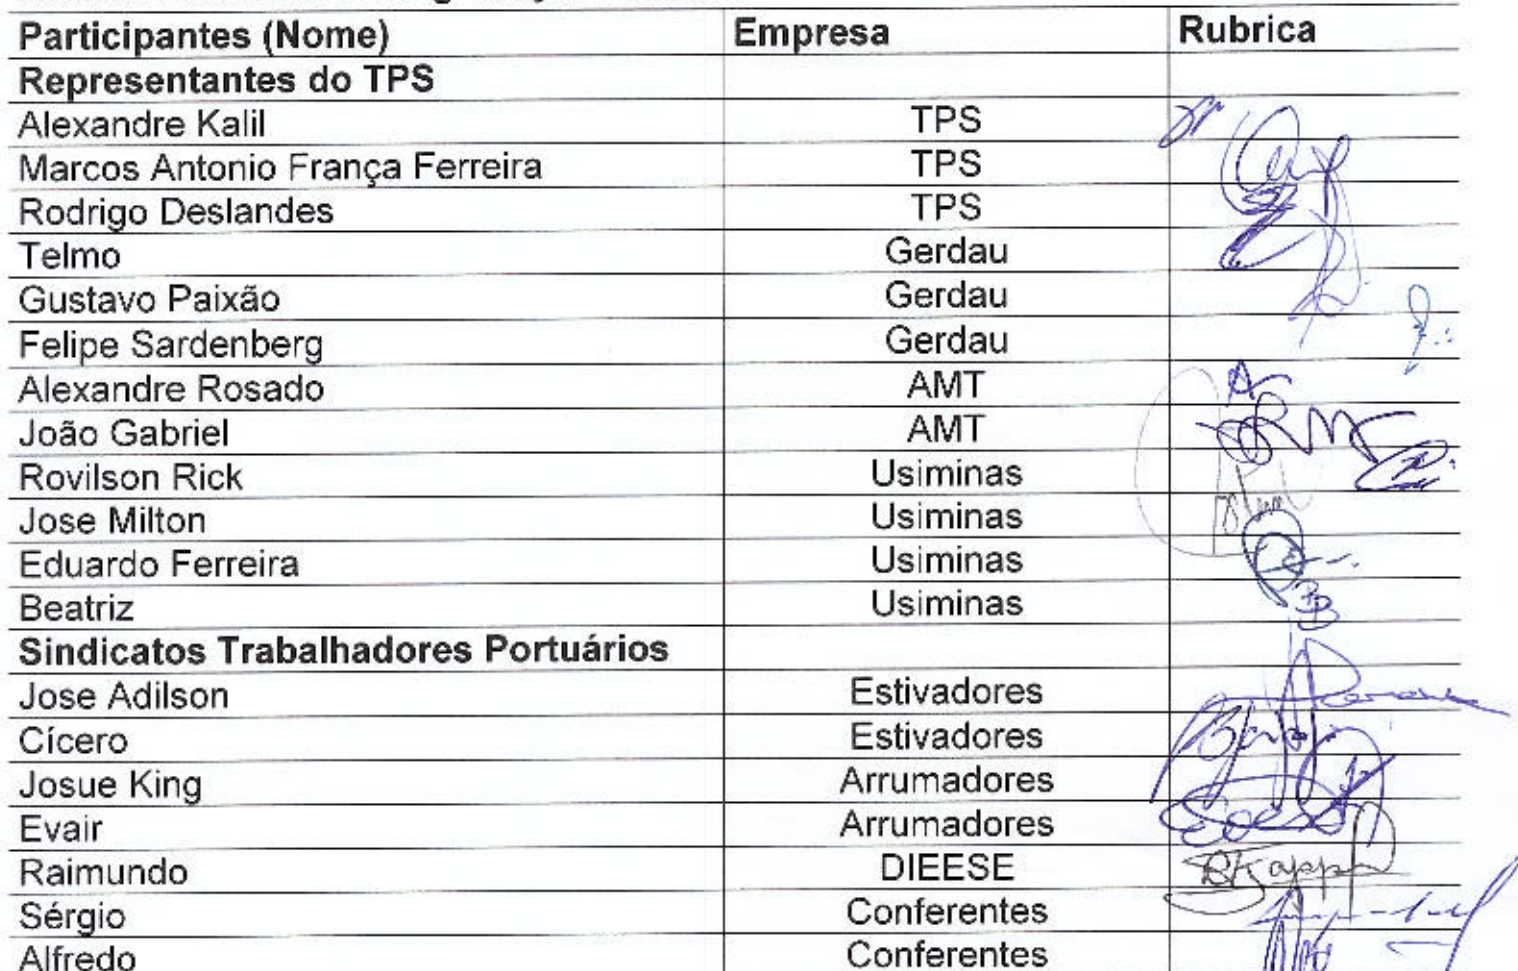 Participantes (Nome) Empresa Rubrica
Representantes do TPS
Alexandre Kalil TPS
Marcos Antonio França Ferreira TPS
Rodrigo Deslandes TPS
Telmo Gerdau
Gustavo Paixão Gerdau
Felipe Sardenberg Gerdau
Alexandre Rosado AMT
João Gabriel AMT
Rovilson Rick Usiminas
Jose Milton Usiminas
Eduardo Ferreira Usiminas
Beatriz Usiminas
Sindicatos Trabalhadores Portuários
Jose Adilson Estivadores
Cícero Estivadores
Josue King Arrumadores
Evair Arrumadores
Raimundo DIEESE
Sérgio Conferentes
Alfredo Conferentes